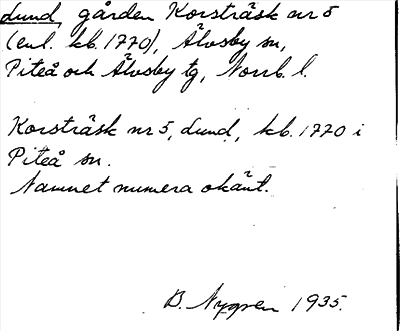 Lund, gården Korsträsk nr 5
(enl. kb. 1770), Älvsby sn,
Piteå och Älvsby tg, Norrb. l.
Korsträsk nr 5, Lund, kb. 1770 i
Piteå sn.
Namnet numera okänt.
B. Nygren 1935.